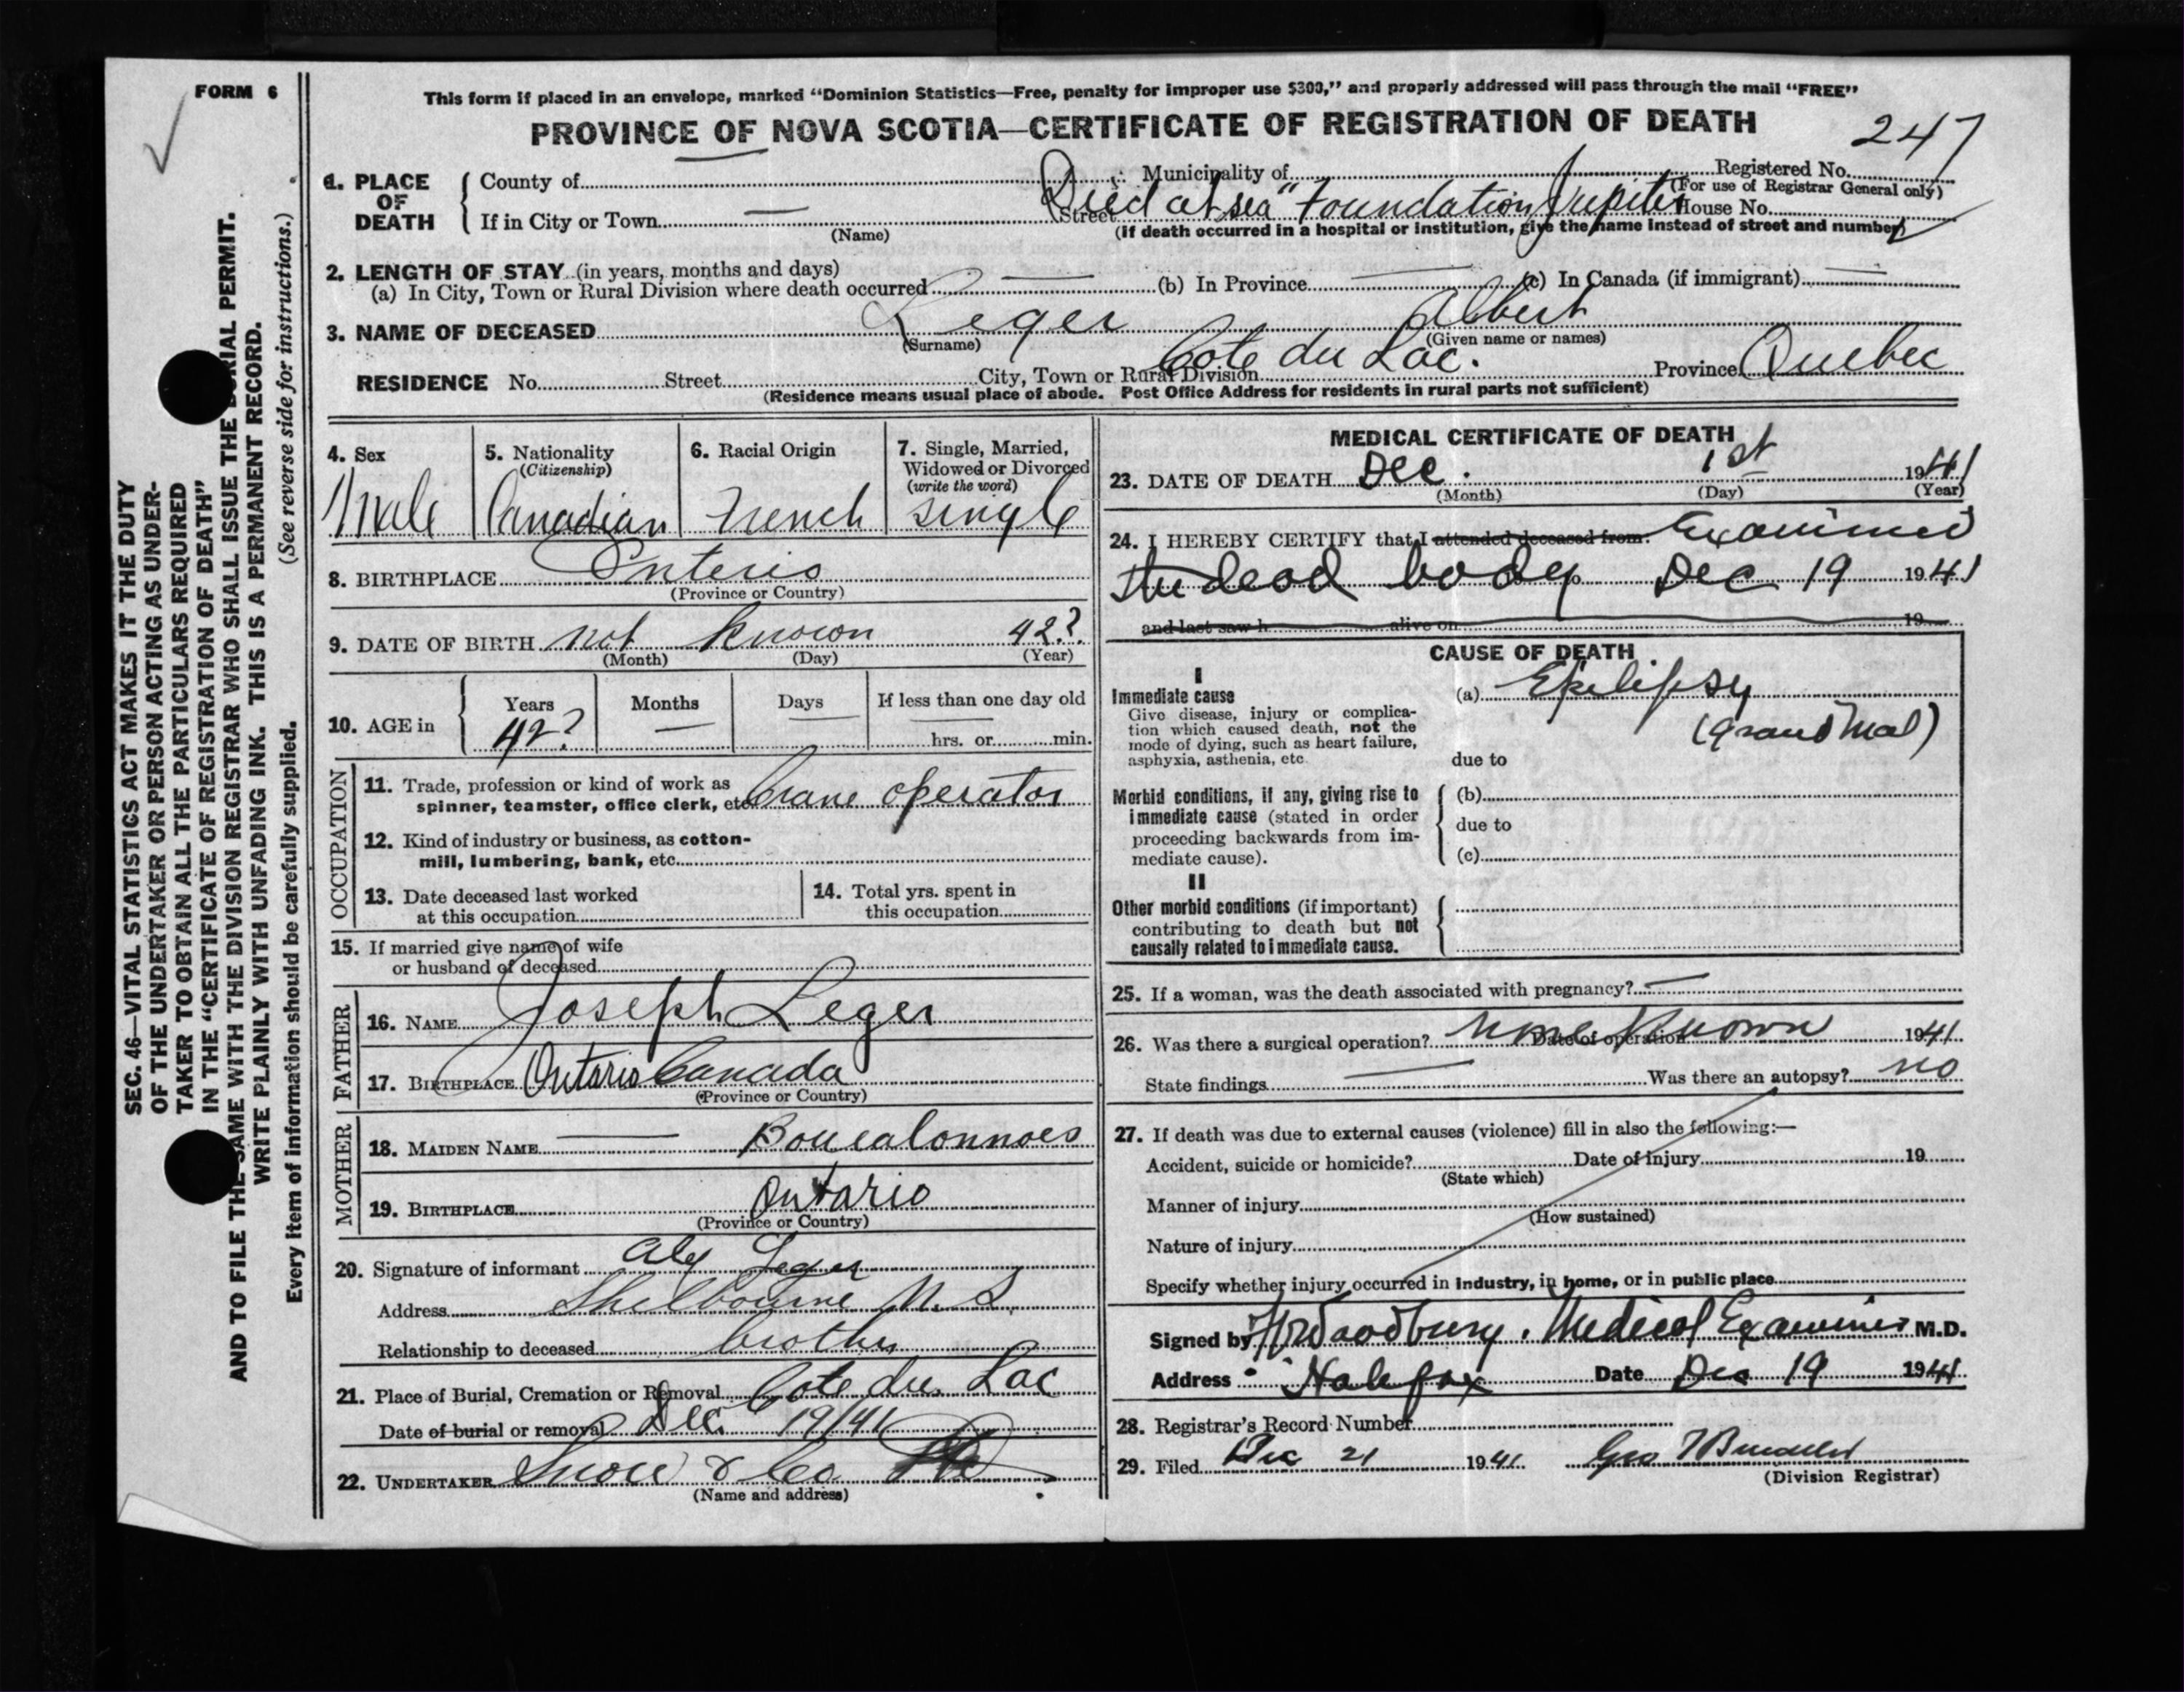 FORM 6
This form if placed in an envelope, marked “Dominion Statistics—Free, penalty for improper use $300,” and properly addressed will pass through the mail “FREE”
PROVINCE OF NOVA SCOTIA—CERTIFICATE OF REGISTRATION OF DEATH
247
1. PLACE OF DEATH
County of — Municipality of Registered No.
(For use of Registrar General only)
If in City or Town — Street Died at sea "Foundation Jupiter House No.
(Name) (If death occurred in a hospital or institution, give the name instead of street and number)
2. LENGTH OF STAY (in years, months and days)
(a) In City, Town or Rural Division where death occurred — (b) In Province — (c) In Canada (if immigrant) —
3. NAME OF DECEASED Leger Albert
(Surname) (Given name or names)
RESIDENCE No. Street City, Town or Rural Division Cote du Lac. Province Quebec
(Residence means usual place of abode. Post Office Address for residents in rural parts not sufficient)
4. Sex
Male
5. Nationality
(Citizenship)
Canadian
6. Racial Origin
French
7. Single, Married,
Widowed or Divorced
(write the word)
single
8. BIRTHPLACE Onterio
(Province or Country)
9. DATE OF BIRTH not known 42?
(Month) (Day) (Year)
10. AGE in
Years Months Days If less than one day old
42? — — — hrs. or min.
OCCUPATION
11. Trade, profession or kind of work as
spinner, teamster, office clerk, etc. Crane operator
12. Kind of industry or business, as cotton-
mill, lumbering, bank, etc.
13. Date deceased last worked
at this occupation
14. Total yrs. spent in
this occupation
15. If married give name of wife
or husband of deceased
FATHER
16. NAME Joseph Leger
17. BIRTHPLACE Ontario Canada
(Province or Country)
MOTHER
18. MAIDEN NAME —
19. BIRTHPLACE Ontario
(Province or Country)
20. Signature of informant Alex Leger
Address Shelbourne N.S.
Relationship to deceased brother
21. Place of Burial, Cremation or Removal Cote du Lac
Date of burial or removal Dec. 19/41
22. UNDERTAKER Snow & Co
(Name and address)
MEDICAL CERTIFICATE OF DEATH
23. DATE OF DEATH Dec. 1st 1941
(Month) (Day) (Year)
24. I HEREBY CERTIFY that I attended deceased from: Examined
the dead body Dec 19 1941
and last saw h alive on 19
CAUSE OF DEATH
I
Immediate cause
Give disease, injury or complica-
tion which caused death, not the
mode of dying, such as heart failure,
asphyxia, asthenia, etc.
(a) Epilipsy
(Grand Mal)
due to
Morbid conditions, if any, giving rise to
immediate cause (stated in order
proceeding backwards from im-
mediate cause).
(b)
due to
(c)
II
Other morbid conditions (if important)
contributing to death but not
causally related to immediate cause.
25. If a woman, was the death associated with pregnancy? —
26. Was there a surgical operation? None Known Date of operation 1941
State findings — Was there an autopsy? no
27. If death was due to external causes (violence) fill in also the following:—
Accident, suicide or homicide? Date of injury 19
(State which)
Manner of injury
(How sustained)
Nature of injury
Specify whether injury occurred in industry, in home, or in public place
Signed by Woodbury, Medical Examiner M.D.
Address Halifax Date Dec 19 1941
28. Registrar's Record Number
29. Filed Dec 21 1941 Geo
(Division Registrar)
SEC. 46—VITAL STATISTICS ACT MAKES IT THE DUTY
OF THE UNDERTAKER OR PERSON ACTING AS UNDER-
TAKER TO OBTAIN ALL THE PARTICULARS REQUIRED
IN THE “CERTIFICATE OF REGISTRATION OF DEATH”
AND TO FILE THE SAME WITH THE DIVISION REGISTRAR WHO SHALL ISSUE THE BURIAL PERMIT.
WRITE PLAINLY WITH UNFADING INK. THIS IS A PERMANENT RECORD.
Every item of information should be carefully supplied. (See reverse side for instructions.)